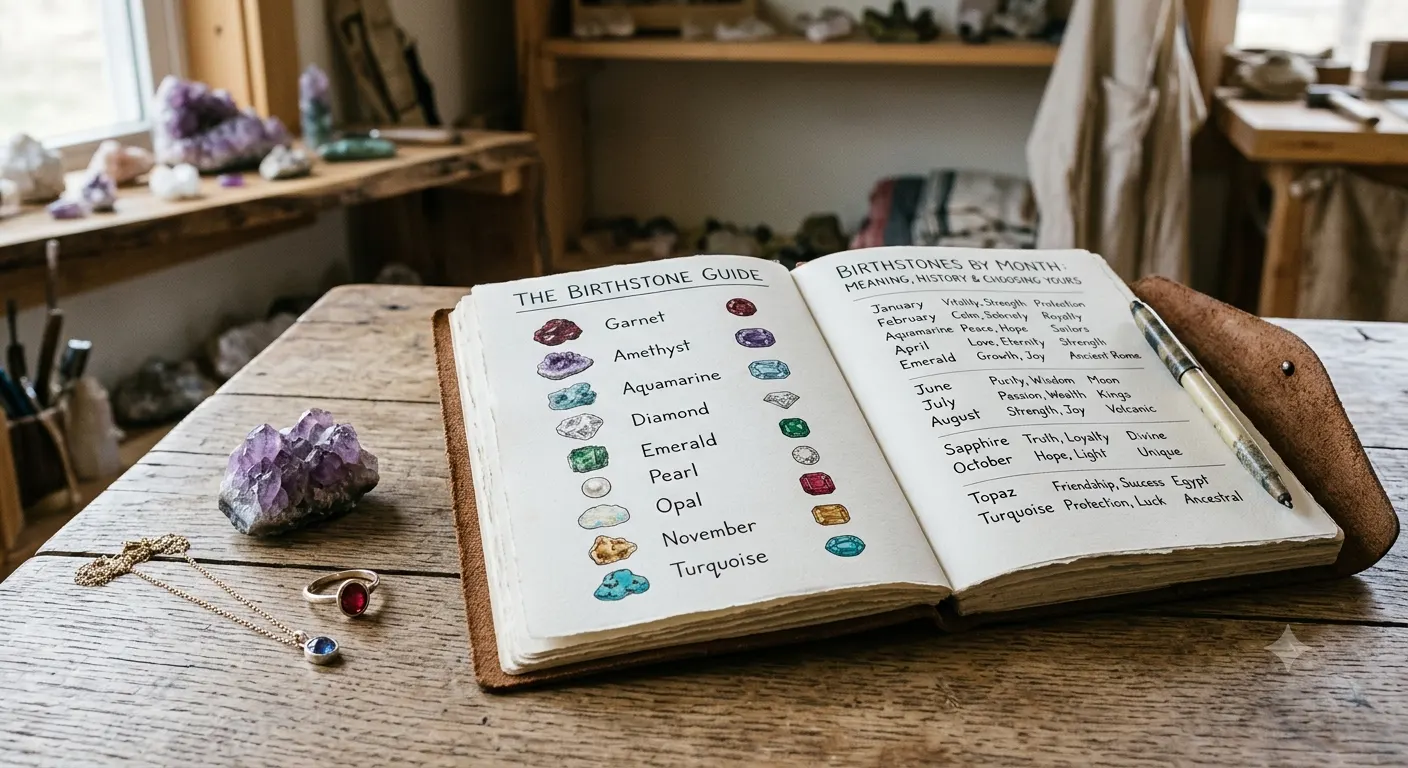 THE BIRTHSTONE GUIDE
Garnet
Amethyst
Aquamarine
Diamond
Emerald
Pearl
Opal
November
Turquoise
BIRTHSTONES BY MONTH:
MEANING, HISTORY & CHOOSING YOURS
January Vitality, Strength Protection
February Calm, Sobriety Royalty
Aquamarine Peace, Hope Sailors
April Love, Eternity Strength
Emerald Growth, Joy Ancient Rome
June Purity, Wisdom Moon
July Passion, Wealth Kings
August Strength, Joy Volcanic
Sapphire Truth, Loyalty Divine
October Hope, Light Unique
Topaz Friendship, Success Egypt
Turquoise Protection, Luck Ancestral